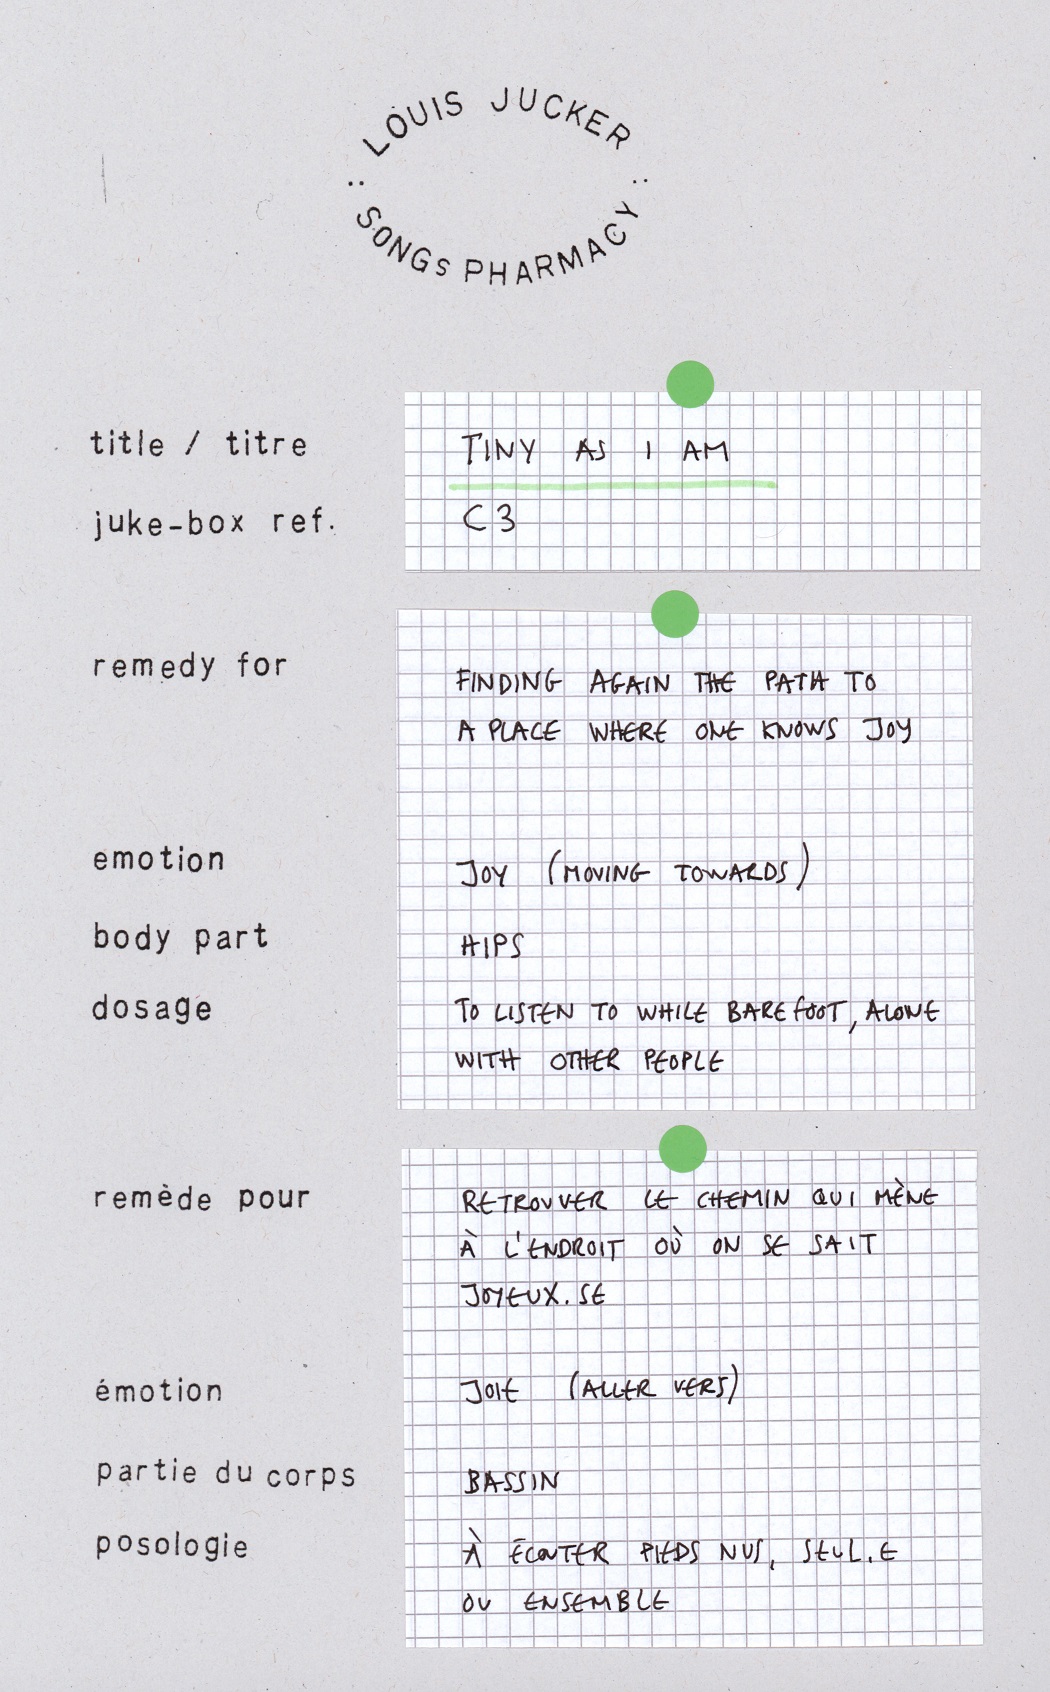 LOUIS JUCKER
: SONGS PHARMACY :
title / titre
TINY AS I AM
juke-box ref.
C3
remedy for
FINDING AGAIN THE PATH TO
A PLACE WHERE ONE KNOWS JOY
emotion
JOY (MOVING TOWARDS)
body part
HIPS
dosage
TO LISTEN TO WHILE BAREfOOT, ALONE
WITH OTHER PEOPLE
remède pour
RETROUVER LE CHEMIN QUI MÈNE
À L'ENDROIT OÙ ON SE SAIT
JOYEUX.SE
émotion
JOIE (ALLER VERS)
partie du corps
BASSIN
posologie
À ÉCOUTER PIEDS NUS, SEUL.E
OU ENSEMBLE